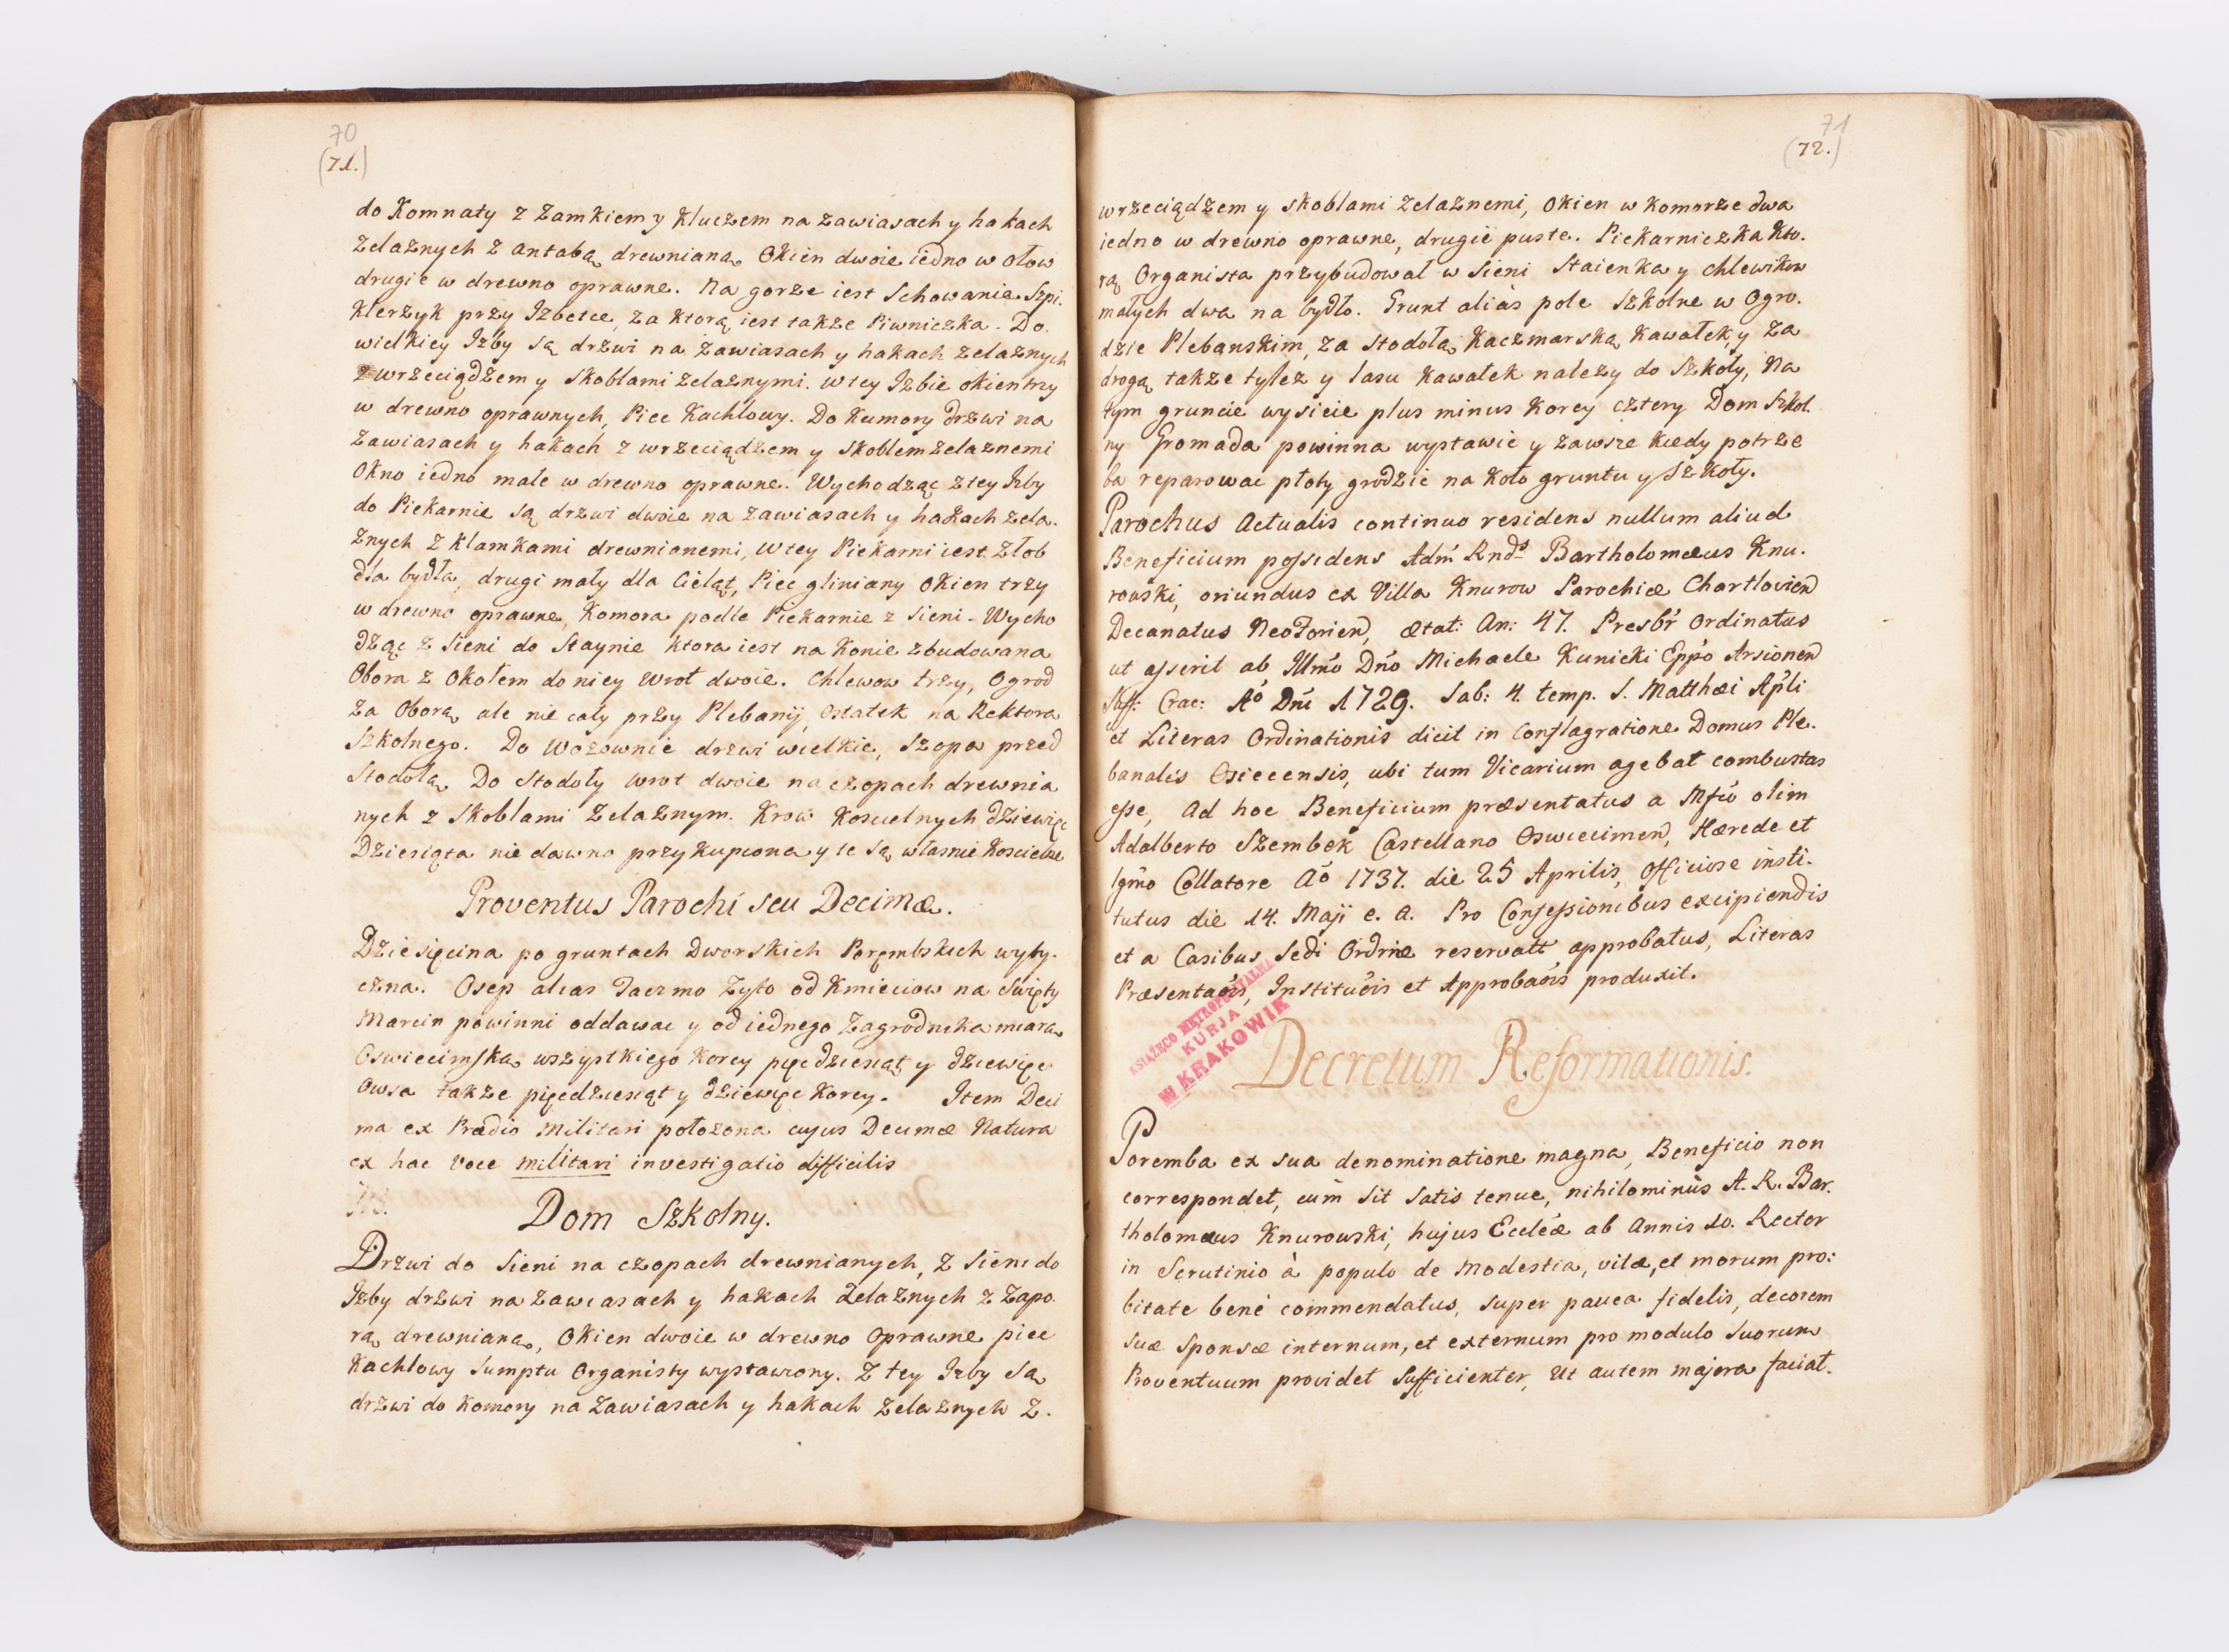 70
(71.)
do Komnaty z Zamkiem y Kluczem na zawiasach y hakach
Zelaznych z antabą drewnianą. Okien dwoie iedno w ołow
drugie w drewno oprawne. Na gorze iest Schowanie Szpi.
Klerzyk przy Izbetce, za ktorą iest takze Piwniczka. Do.
wielkiey Izby są drzwi na zawiasach y hakach zelaznych
z wrzeciądzem y skoblami zelaznymi. w tey Izbie okien trzy
w drewno oprawnych, Piec Kachlowy. Do Kumory drzwi na
Zawiasach y hakach z wrzeciądzem y skoblem zelaznemi
Okno iedno małe w drewno oprawne. Wychodząc z tey Izby
do Piekarnie są drzwi dwoie na zawiasach y hakach zela.
Znych z klamkami drewnianemi, w tey Piekarni iest Złob
dla bydła, drugi mały dla Cieląt, Piec gliniany Okien trzy
w drewno oprawne, Komora podle Piekarnie z Sieni. Wycho
dząc z Sieni do Staynie ktora iest na Konie zbudowana
Obora z Okołem do niey wrot dwoie. Chlewow trzy, Ogrod
za Oborą, ale nie cały przy Plebanij, ostatek na Rektora
Szkolnego. Do Wozownie drzwi wielkie, Szopa przed
Stodołą, Do Stodoły wrot dwoie na czopach drewnia
nych z Skoblami Zelaznym. Krow Koscielnych dziewięc
Dziesiąta nie dawno przykupiona y te są własnie Koscielne
Proventus Parochi seu Decimæ.
Dziesięcina po gruntach Dworskich Porębskich wyty.
czna. Osep alias Zacimo Zyto od Kmieciow na Swięty
Marcin powinni oddawac y od iednego Zagrodnika miarą
Oswiecimską wszystkiego Korcy pięcdziesiąt y dziewięc
Owsa takze pięcdziesiąt y dziewięc Korcy. Item Deci
ma ex Prædio militari położona cujus Decimæ Natura
ex hac voce militari investigatio difficilis
Dom Szkolny.
Drzwi do Sieni na czopach drewnianych, z Sieni do
Izby drzwi na zawiasach y hakach Zelaznych z Zapo.
rą drewnianą, Okien dwoie w drewno Oprawne piec
Kachlowy sumptu Organisty wystawiony. Z tey Izby są
drzwi do Komory na zawiasach y hakach Zelaznych z.
71
(72.)
wrzeciądzem y skoblami zelaznemi, Okien w Komorze dwa
iedno w drewno oprawne, drugie puste. Piekarniczka Kto.
rą Organista przybudował w Sieni Staienka y chlewikow
małych dwa na bydło. Grunt aliàs pole Szkolne w Ogro.
dzie Plebanskim, za stodołą Kaczmarską Kawałek, y za
drogą takze tylez y lasu kawałek nalezy do Szkoły, Na
tym gruncie wysieie plus minus Korcy cztery Dom Szkol.
ny Gromada powinna wystawic y zawsze kiedy potrze
ba reparowac płoty grodzic na koło gruntu y Szkoły.
Parochus Actualis continuo residens nullum aliud
Beneficium possidens Adm Rnds Bartholomæus Knu.
rowski, oriundus ex Villa Knurow Parochiæ Chartlovien
Decanatus NeoForien, ætat: An: 47. Presbr Ordinatus
ut asserit ab Illmo Dno Michaele Kunicki Eppo Arsionen
Suff: Crac: Ao Dni 1729. Sab: 4. temp. S. Matthæi Apli
et Literas Ordinationis dicit in Conflagratione Domus Ple.
banalis Osiecensis, ubi tum Vicarium agebat combustas
esse, Ad hoc Beneficium præsentatus a Mfco olim
Adalberto Szembek Castellano Oswiecimen, Hærede et
Igmo Collatore Ao 1737. die 25 Aprilis, Officiose insti.
tutus die 14. Maji e. a. Pro Confessionibus excipiendis
et a Casibus Sedi Ordriæ reservatt approbatus, Literas
Præsentaõis, Institu̇õis et Approbaõis produxit.
KSIĄŻĘCO METROPOLITALNA
KURJA
W KRAKOWIE
Decretum Reformationis.
Poremba ex sua denominatione magna, Beneficio non
correspondet, cum sit satis tenue, nihilominùs A. R. Bar.
tholomæus Knurowski, hujus Eccleæ ab Annis 10. Rector
in Scrutinio à populo de Modestia, vitæ, et morum pro:
bitate benè commendatus, super pauca fidelis, decorem
suæ Sponsæ internum, et externum pro modulo suorum
Proventuum providet Sufficienter, Ut autem majora faciat.